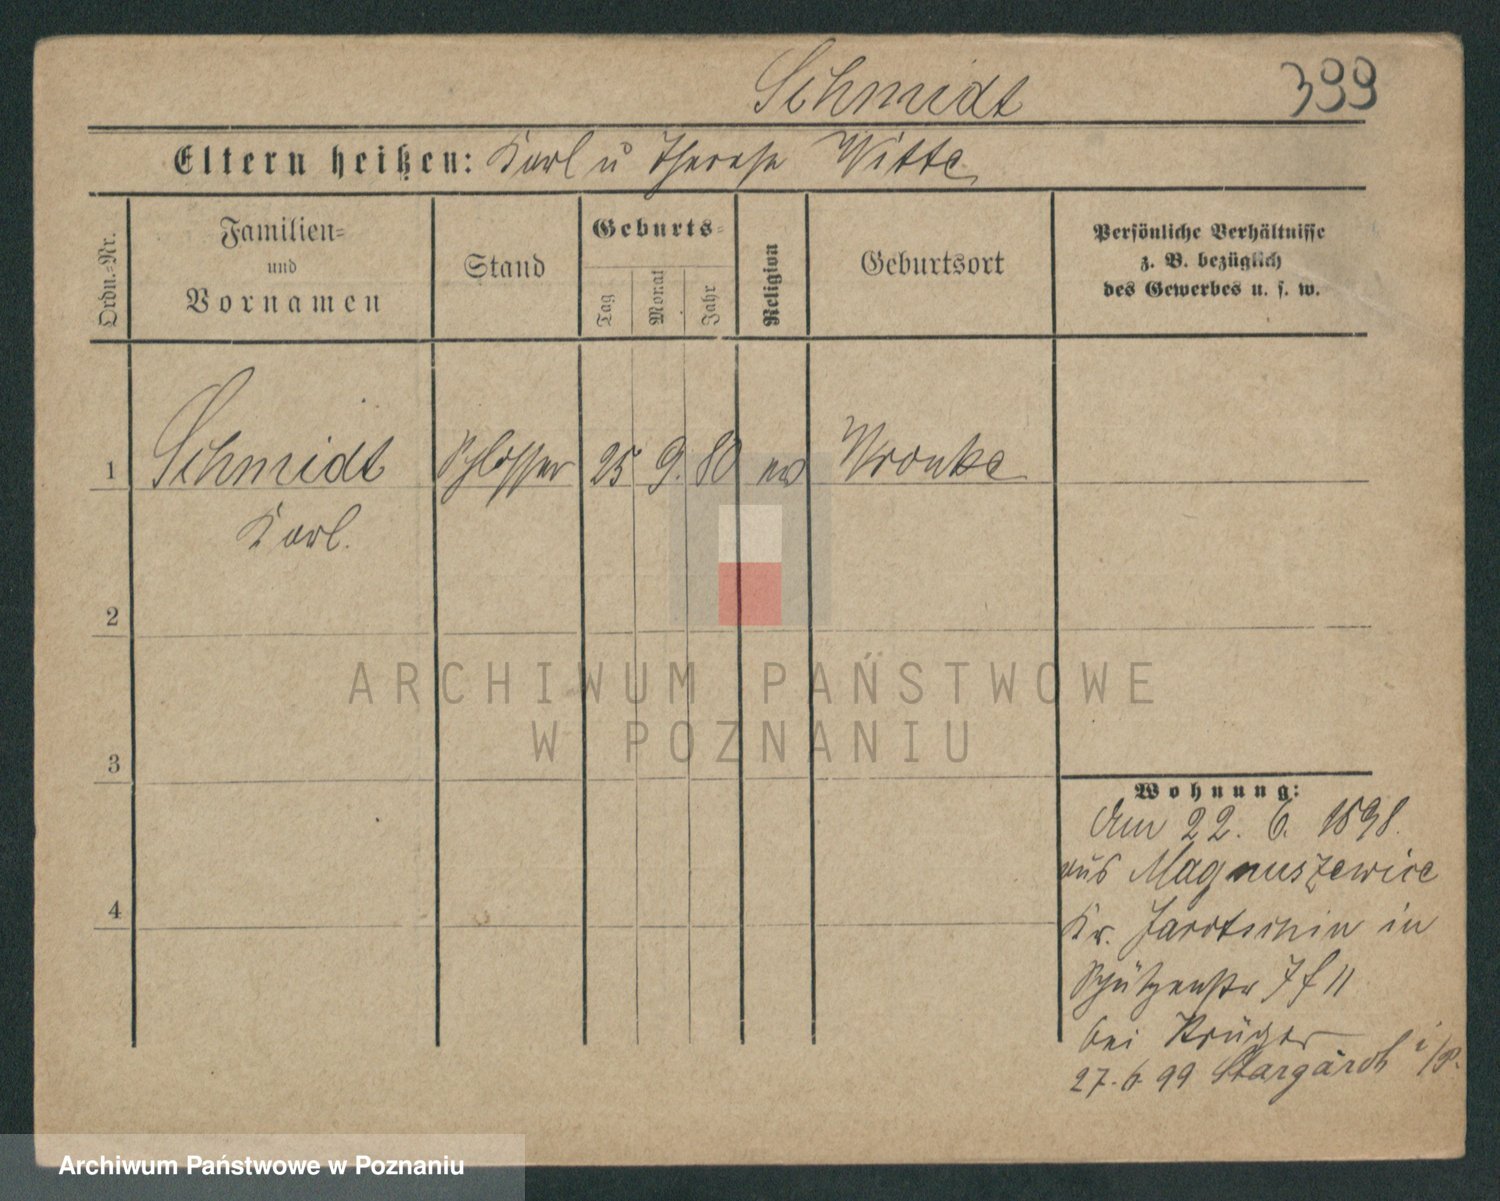 Schmidt 399
Eltern heißen: Karl u Therese Witte
Ordn.-Nr.
Familien-
und
Vornamen
Stand
Geburts-
Tag
Monat
Jahr
Religion
Geburtsort
Persönliche Verhältnisse
z. B. bezüglich
des Gewerbes u. s. w.
1 Schmidt Schlosser 25. 9. 80 ev Wronke
Karl.
2
ARCHIWUM PAŃSTWOWE
W POZNANIU
3
Wohnung:
Am 22. 6. 1898.
aus Magnuszewice
4
Kr. Jarotschin in
Schützenstr 7 f 11
bei Krüger
27. 6 99 Stargardt i/P.
Archiwum Państwowe w Poznaniu